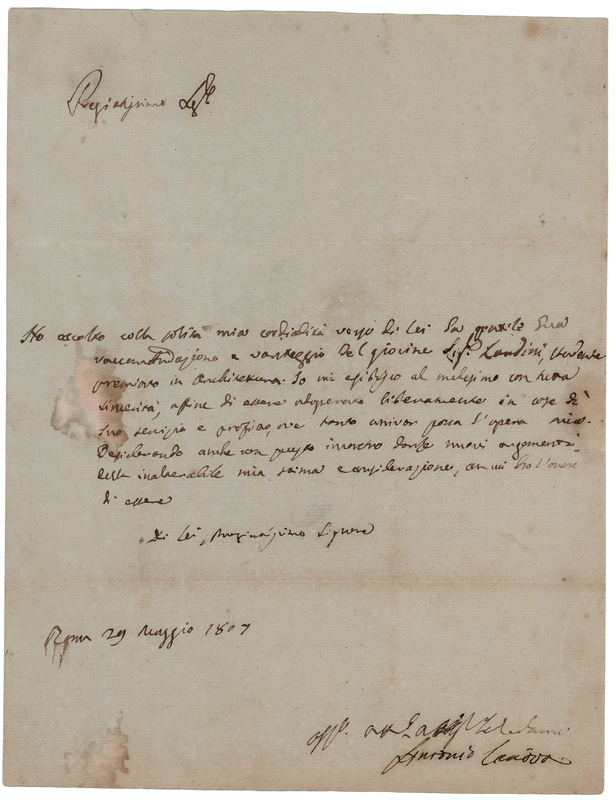 Pregiatissimo Sigre
Ho accolto colla solita mia cordialità verso di Lei la gentile Sua
raccomandazione a vantaggio del giovine Sigr. Landini, studente
premiato in Architettura. Io mi esibisco al medesimo con tutta
sincerità, affine di essere adoperato liberamente in cose di
suo servigio e profitto, ove tanto arrivar possa l'opera mia.
Desiderando anche con questo incontro darle nuovi argomenti
della inalterabile mia stima e considerazione, con cui ho l'onore
di essere
Di Lei, Pregiatissimo Signore
Roma 29 Maggio 1807
Antonio Canova